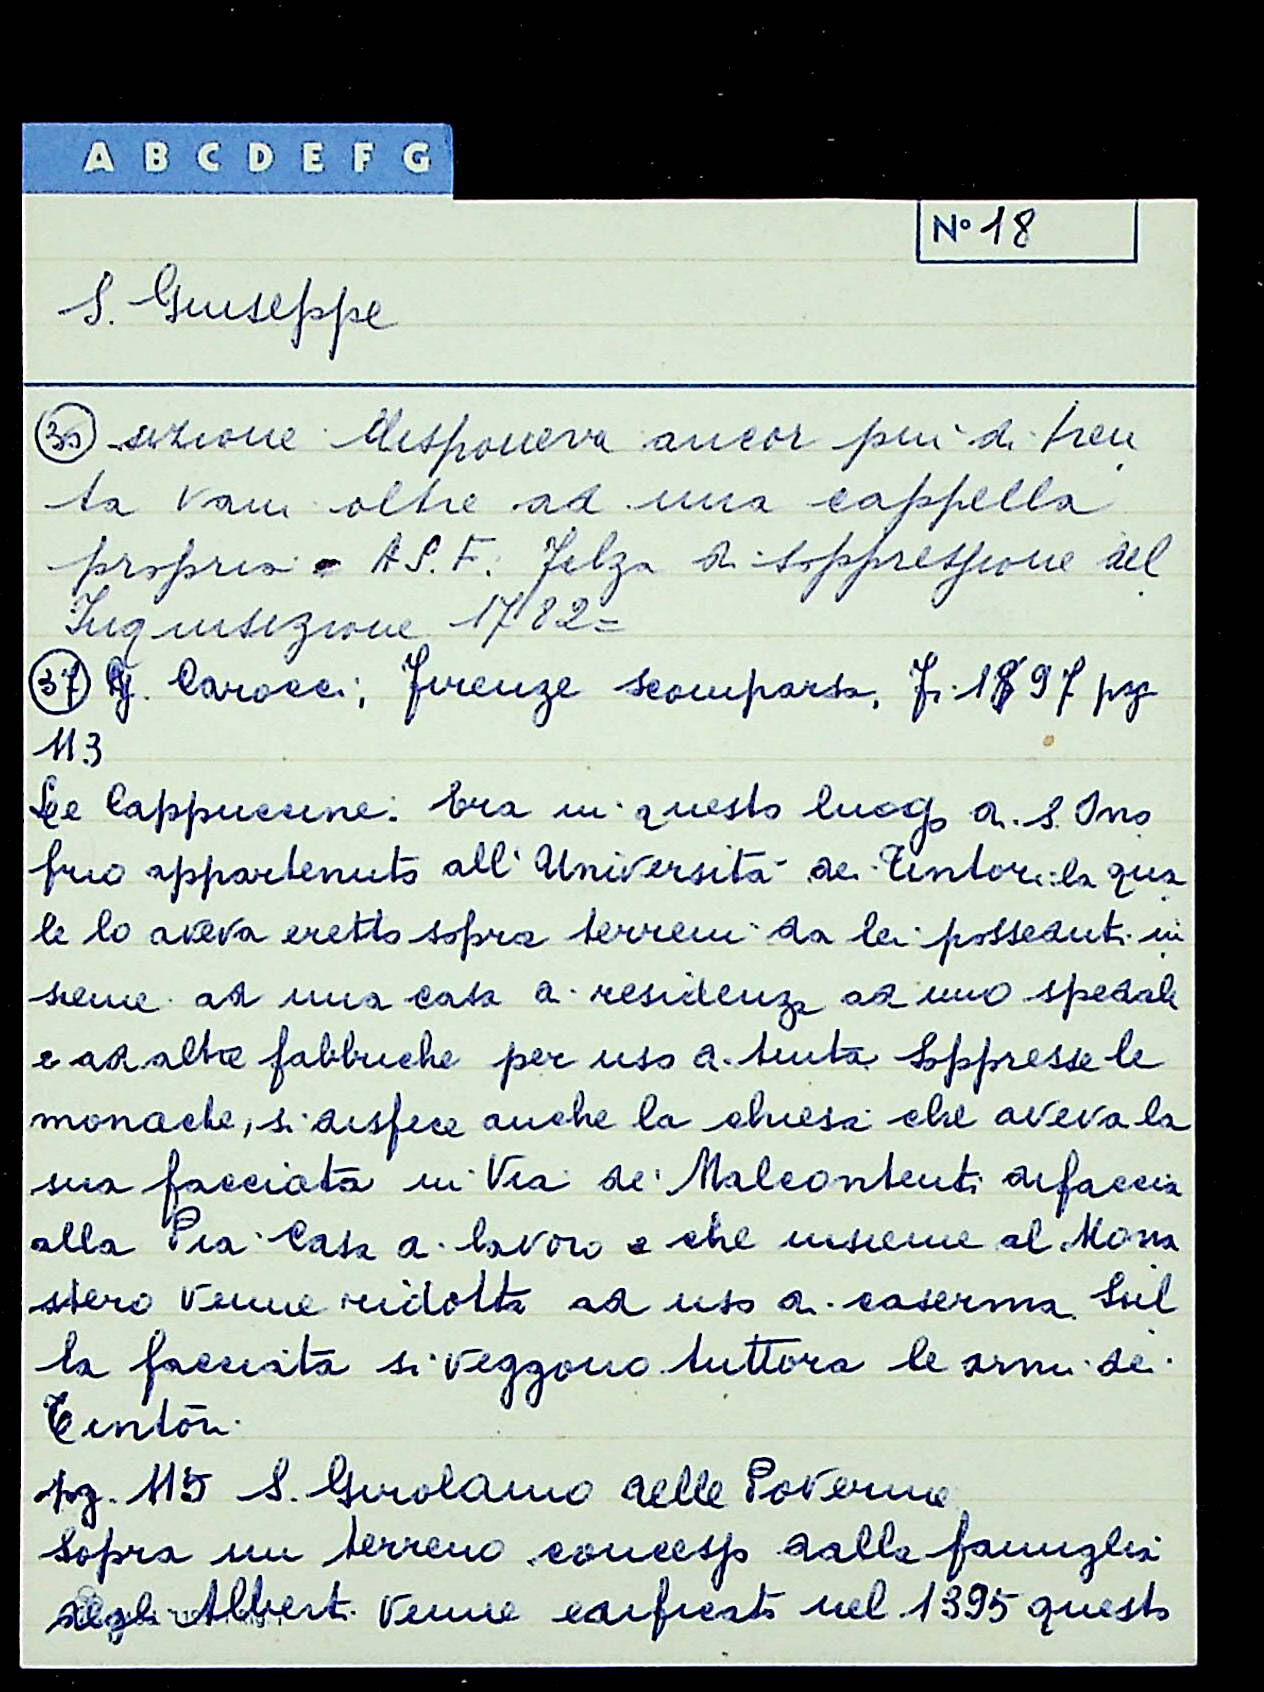 A B C D E F G
Nº 18
S. Giuseppe
sizione disponeva ancor più di tren
ta vani oltre ad una cappella
propria = A.S.F. Filza di soppressione del
Inquisizione 1782=
37 G. Carocci, Firenze scomparsa, Fi. 1897 pg
113
Le Cappuccine. Era in questo luogo di S. Ono
frio appartenuto all'Università dei Tintori la qua
le lo aveva eretto sopra terreni da lei posseduti in
sieme ad una casa di residenza ad uno spedale
e ad altre fabbriche per uso di tinta. Soppresse le
monache, si disfece anche la chiesa che aveva la
sua facciata in Via de' Malcontenti difaccia
alla Pia Casa di lavoro e che insieme al Mona
stero venne ridotta ad uso di caserma. Sul
la facciata si veggono tuttora le armi dei
Tintori.
pg. 115 S. Girolamo delle Poverine
Sopra un terreno concesso dalla famiglia
degli Alberti venne edificato nel 1395 questo